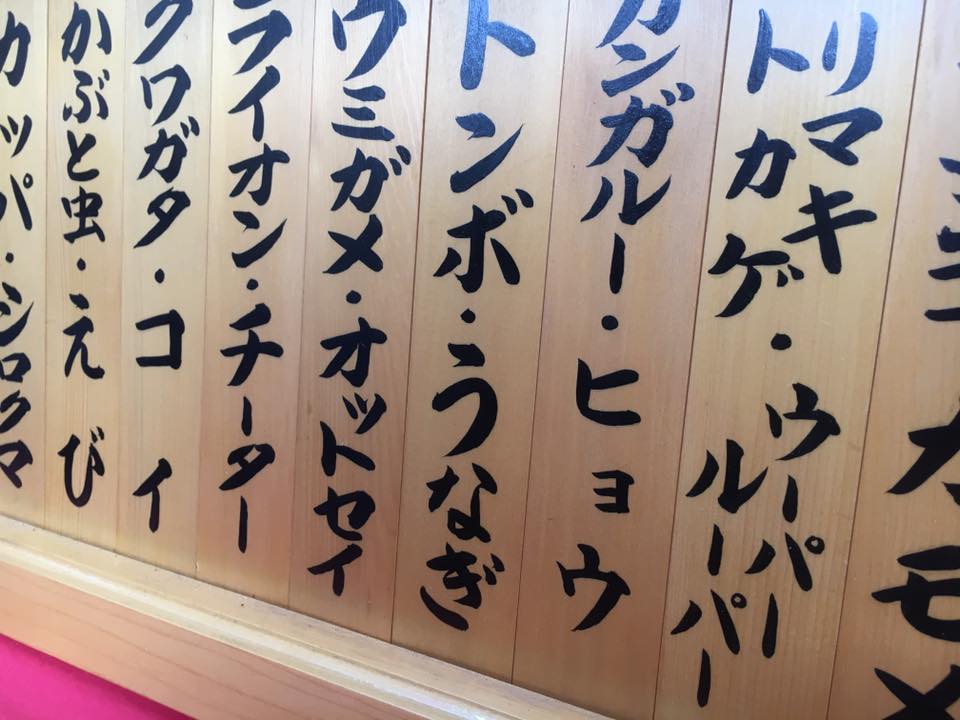 カモメ
リマキトカゲ・ウーパールーパー
カンガルー・ヒョウ
トンボ・うなぎ
ウミガメ・オットセイ
ライオン・チーター
クワガタ・コイ
かぶと虫・えび
カッパ・シロクマ